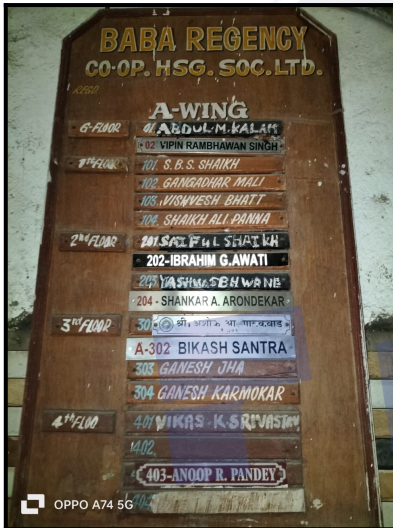 BABA REGENCY
CO-OP. HSG. SOC. LTD.
REGD
A-WING
G-FLOOR 01 ABDUL.M.KALAM
02 VIPIN RAMBHAWAN SINGH
1st FLOOR 101. S.B.S. SHAIKH
102. GANGADHAR MALI
103. VISHVESH BHATT
104. SHAIKH ALI PANNA
2nd FLOOR 201 SAIFUL SHAIKH
202-IBRAHIM G.AWATI
203
204 - SHANKAR A. ARONDEKAR
3rd FLOOR 301 श्री. अशोक
A-302 BIKASH SANTRA
303 GANESH JHA
304 GANESH KARMOKAR
4th FLOO 401 VIKAS K SRIVASTAV
402.
403-ANOOP R. PANDEY
OPPO A74 5G